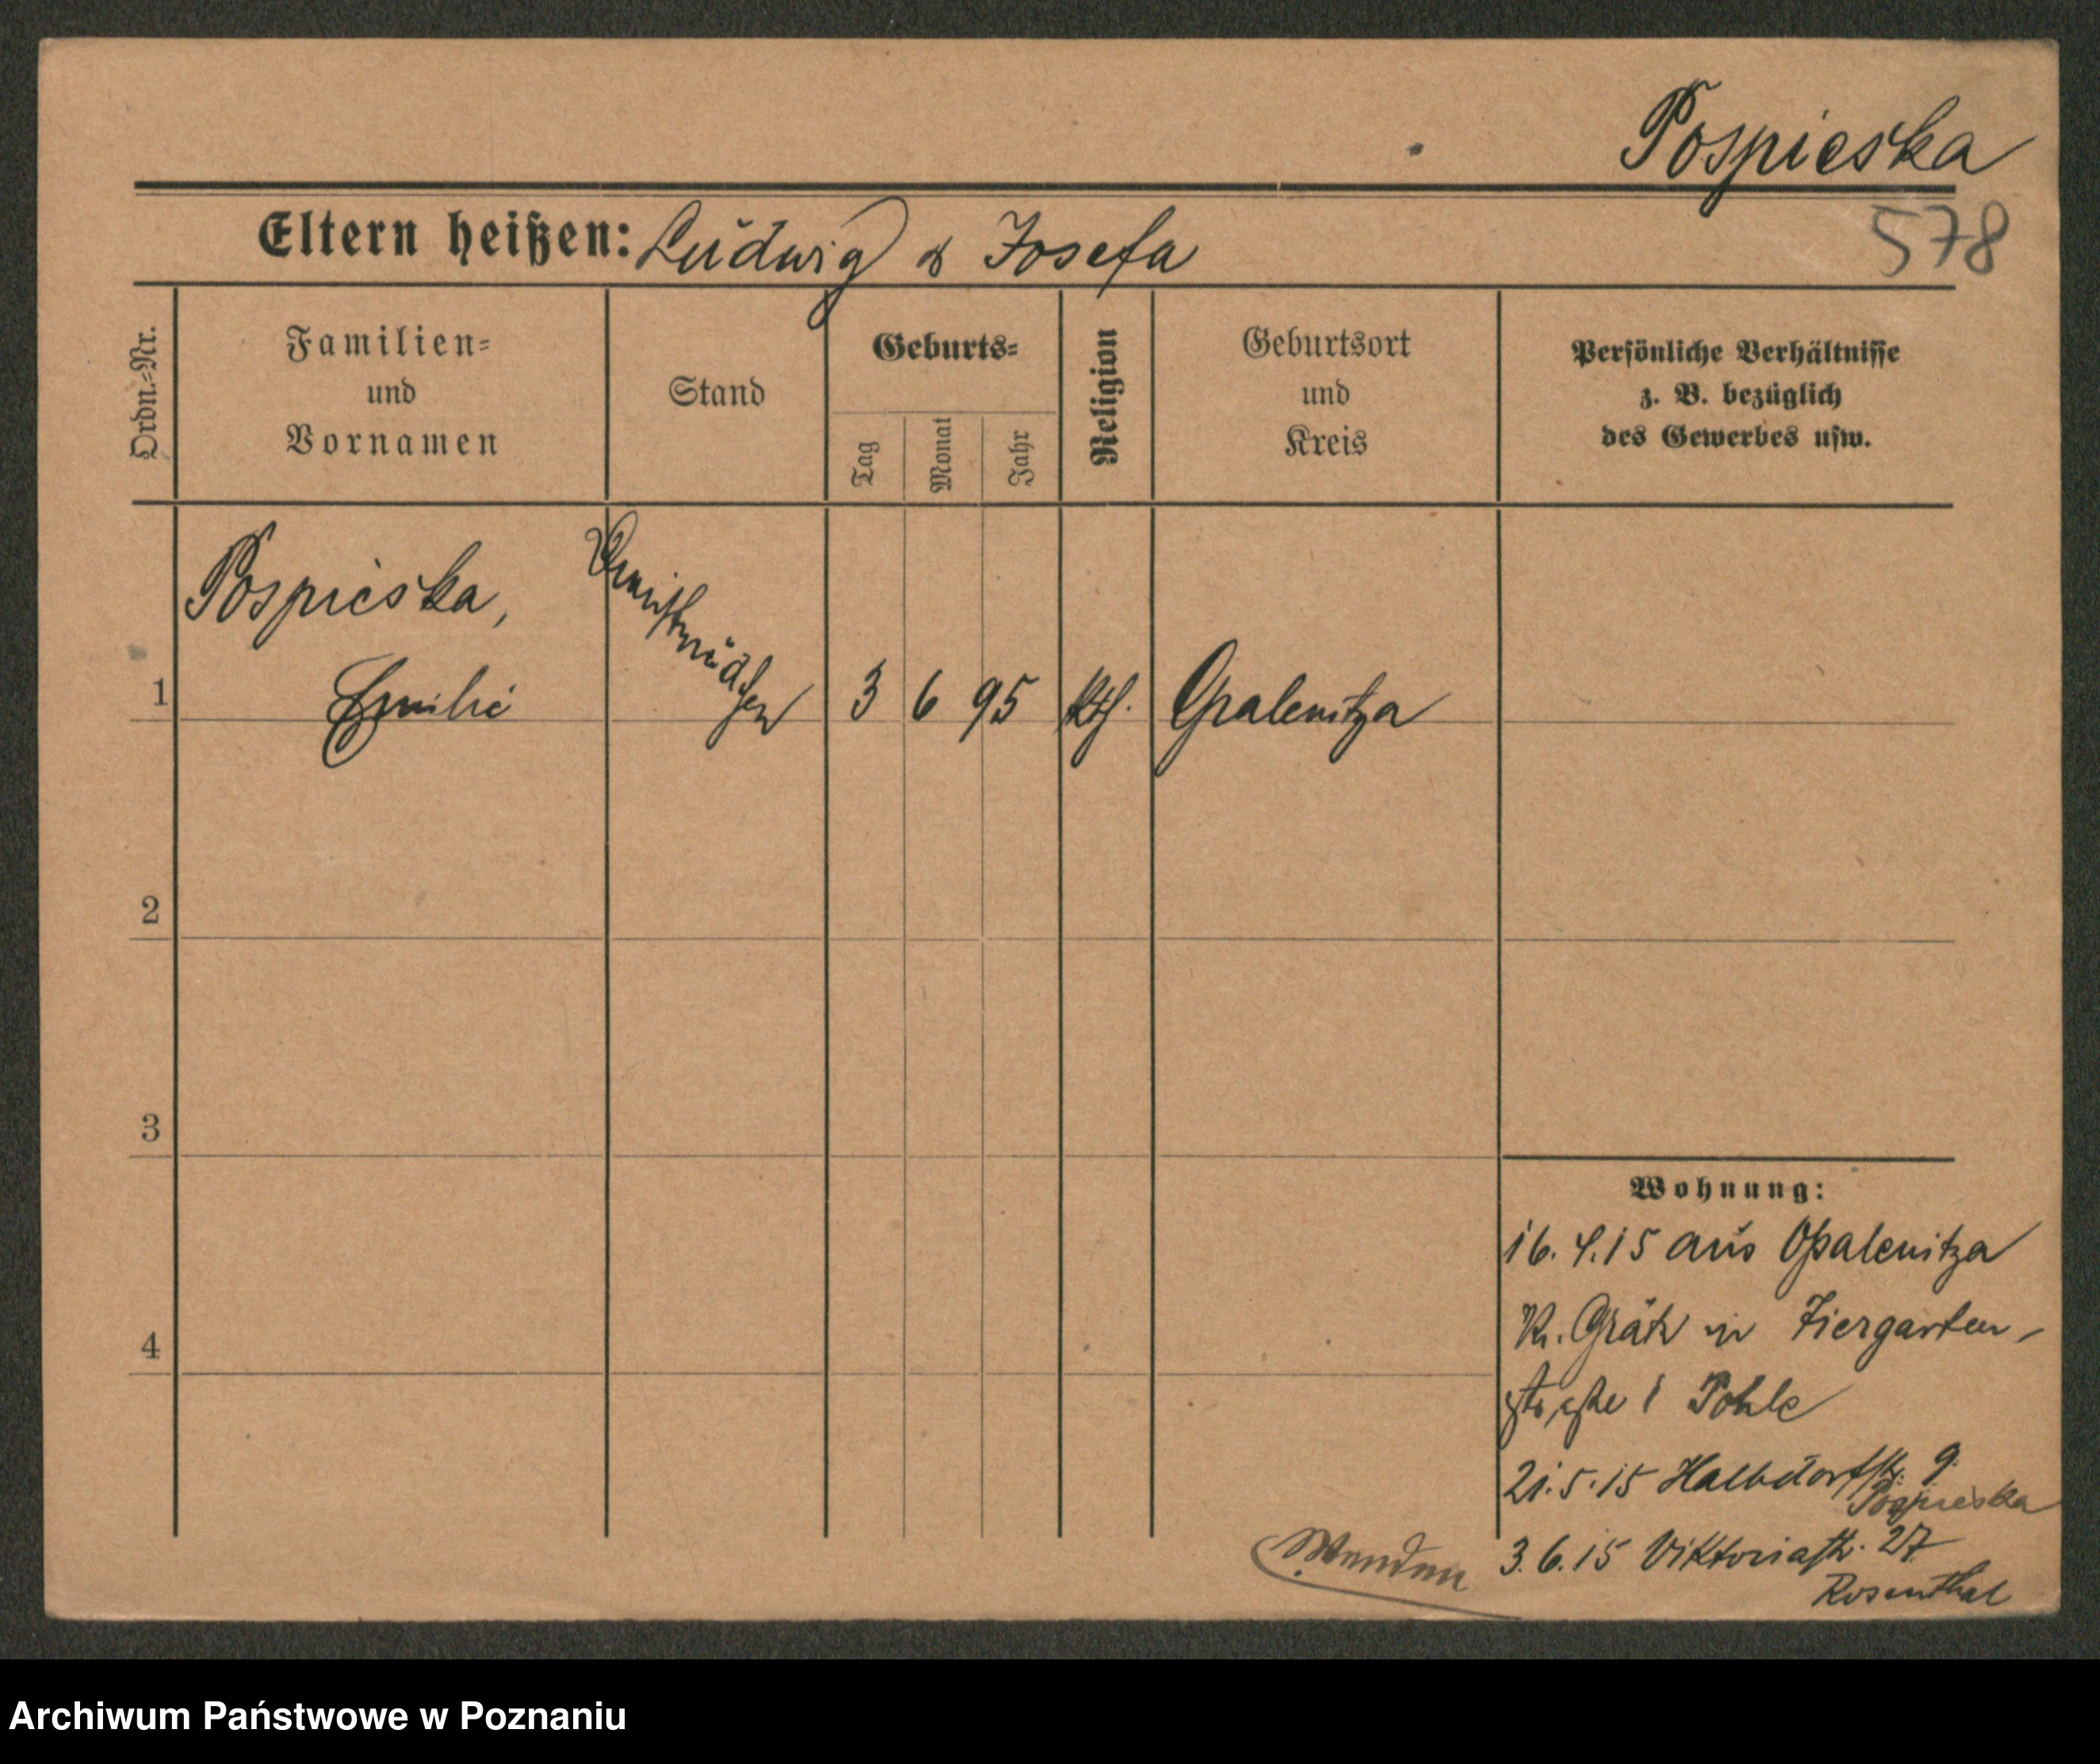 Pospieska
578
Eltern heißen: Ludwig & Josefa
Ordn.=Nr.
Familien=
und
Vornamen
Stand
Geburts=
Tag
Monat
Jahr
Religion
Geburtsort
und
Kreis
Persönliche Verhältnisse
z. B. bezüglich
des Gewerbes usw.
1
Pospieska,
Emilie
Dienstmädchen
3 6 95 kth. Opalenitza
2
3
4
Wohnung:
16. 4. 15 aus Opalenitza
Kr. Grätz in Tiergarten-
straße 1 Pohle
21. 5. 15 Halbdorfstr. 9.
Pospieska
3. 6. 15 Viktoriastr. 27
Rosenthal
Wenden
Archiwum Państwowe w Poznaniu